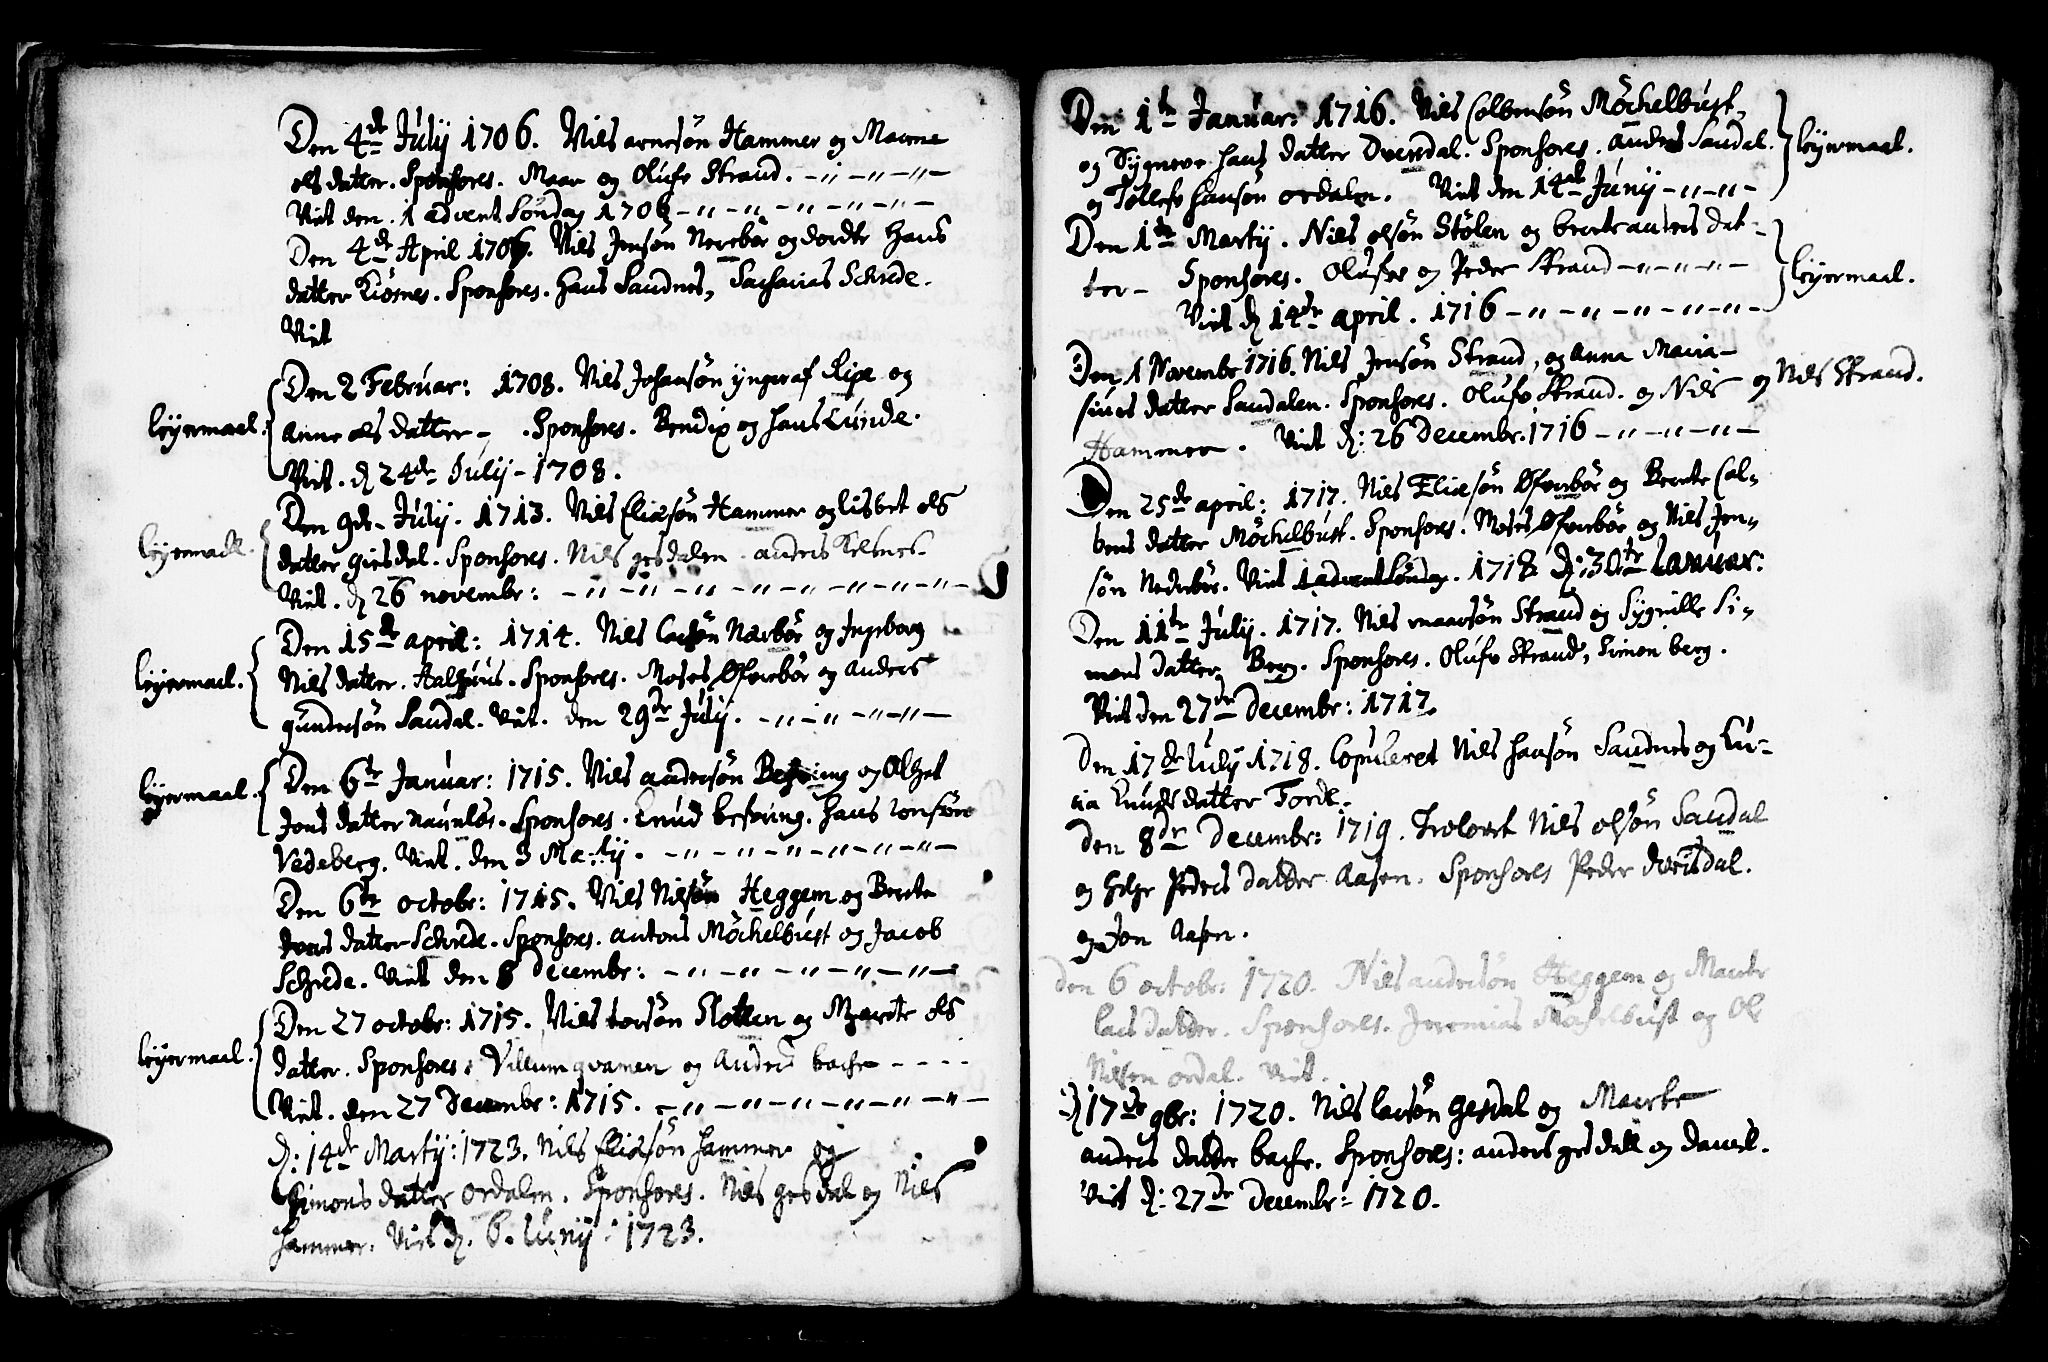 Den 4de Julij 1706. Niels arnesön Hammer og Marne
ols datter. Sponsores. Maar og Olufe Strand.
Viet den. 1 advent Söndag 1706
Den 4de April 1706. Niels Jensön Nerebör og dordte Hans
datter Kiösnes. Sponsores. Hans Sandnes, Sacharias Schrede.
Viet
Den 2 Februar: 1708. Niels Johansön ÿngeraf Ripe og
leÿermaal. Anne ols datter - . Sponsores. Bendix og hans Lunde.
Viet. d 24de Julij - 1708.
Den 9de Julij. 1713. Niels Eliæsön Hammer og lisbet ols
leÿermaal. datter giesdal. Sponsores. Niels gesdalen. anders Kiesnes.
Viet. d 26 novembr:
Den 15de april: 1714. Niels larsön Nærbör og Ingeborg
leÿermaal. Niels datter. Aalhuus. Sponsores. Moses Øfverbör og anders
gundersön Sandal. Viet. den 29de Julij.
Den 6te Januar: 1715. Niels andersön Befring og Olhet
leÿermaal. Jons datter naunlös. Sponsores. Knud befring. Hans
Vedeberg. Viet. den 3 Martij.
Den 6te octobr: 1715. Niels Nilsön Heggem og Berete
datter Schrede. Sponsores. antons Möchelbust og Jacob
Schrede. Viet den 8 Decembr:
Den 27 octobr: 1715. Niels torsön Flotten og Marete ols
leÿermaal. datter. Sponsores: Villum qvamen og Anders bache
Viet. den 27 Decembr: 1715.
d: 14de Martij: 1723. Niels Eliæsön hammer og
Simons datter ordalen. Sponsores. Niels gesdal og Niels
hammer. Viet d. 6. Iunij: 1723.
Den 1te Januar: 1716. Niels Colbensön Möchelbust
og Sÿgneve hans datter Dvendal. Sponsores. anders Sandal. leÿermaal.
og Tollefe hansön ordalen. Viet den 14de Junij
Den 1te Martij. Niels olsön Stölen og berete anders dat-
ter - Sponsores. Olufve og Peder Strand leÿermaal.
Viet d 14de april. 1716
Den 1 Novembr 1716. Niels Jensön Strand, og Anna Maria
datter Sandalen. Sponsores. Olufe Strand. og Niels og Niels Strand.
Hammer. Viet d: 26 Decembr. 1716
Den 25de april: 1717. Niels Eliæsön Øfverbör og Berete Col-
bens datter Möchelbust. Sponsores. Moses Øfverbör og Niels Jen-
sön Nederbör. Viet 1 advent Söndag. 1718 d: 30te Ianuar:
Den 11te Julij. 1717. Niels maarsön Strand og Sÿgnille Si-
mons datter Berg. Sponsores. Olufe Strand, Simen berg.
Viet den 27de Decembr: 1717.
Den 17de Iulij 1718. Copuleret Niels hansön Sandnes og Lu-
cia Knuds datter Förde.
den 8de Decembr: 1719. Trolovet Niels olsön Sandal
og helge Peders datter Aasen. Sponsores Peder dvergsdal.
og Jon Aasen.
den 6 octobr: 1720. Niels andersön Heggem og Marite
lars datter. Sponsores. Jeremias Möchelbust og Ole
Nilsen ordal. Viet.
d 17de 9br: 1720. Niels larsön gesdal og Marite
anders datter bache. Sponsores: anders gesdall og Daniel.
Viet d: 27de Decembr: 1720.